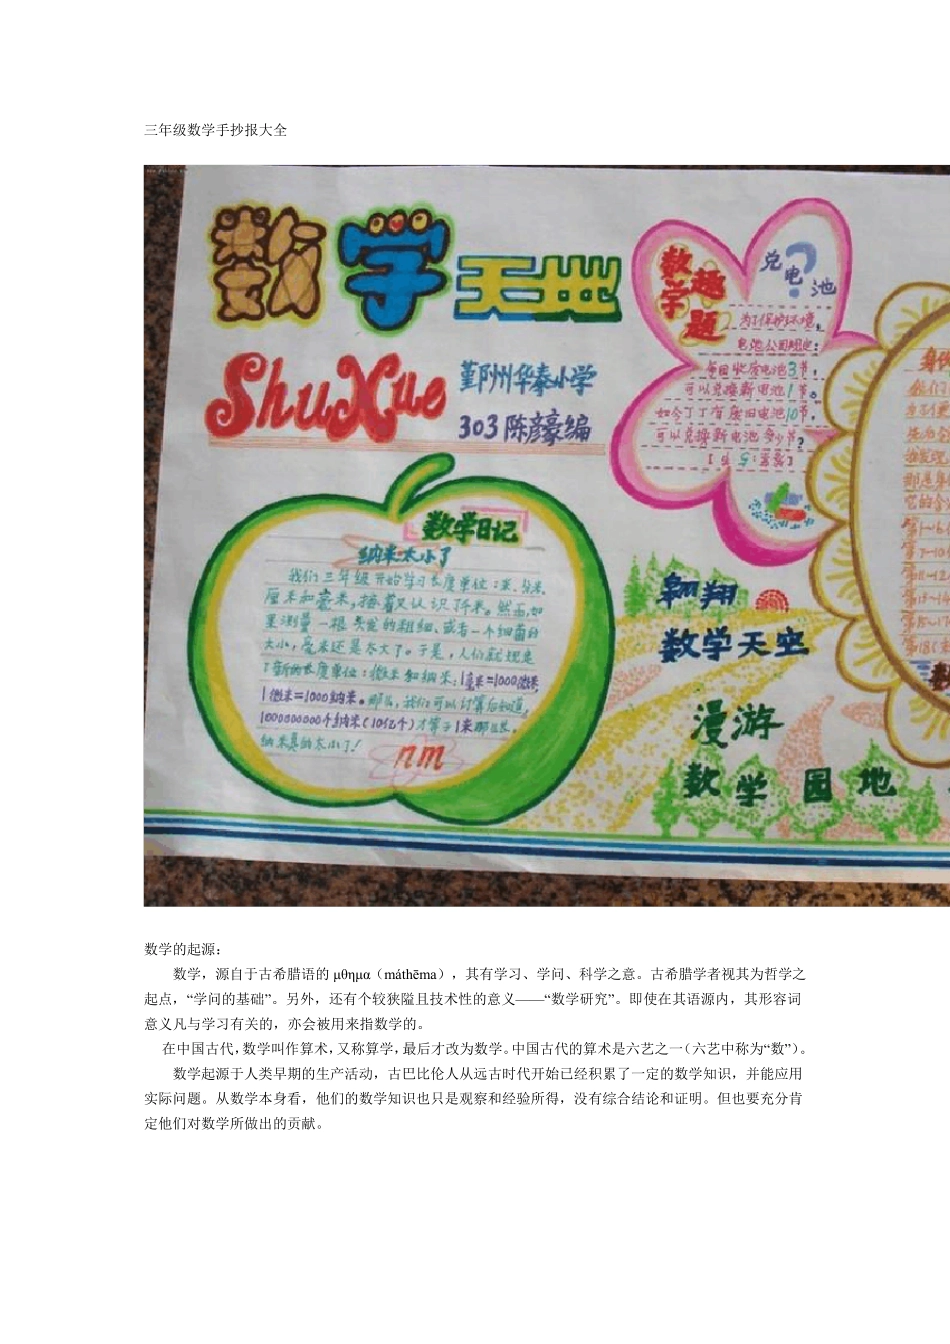 三年级数学手抄报大全
数学天地
ShuXue
鄞州华泰小学
303 陈彦豪编
数学趣题
兑电池
?
为了保护环境，
电池公司规定：
每回收废电池3节，
可以兑换新电池1节。
如今丁丁有废旧电池10节，
可以兑换新电池多少节？
数学日记
纳米太小了
我们三年级开始学习长度单位：米、分米、
厘米和毫米，接着又认识了千米。然而，如
果测量一根头发的粗细、或者一个细菌的
大小，毫米还是太大了。于是，人们就规定
了新的长度单位：微米和纳米；1毫米=1000微米，
1微米=1000纳米。那么，我们可以计算后知道，
1000000000个纳米（10亿个）才等于1米那么长。
纳米真的太小了！
nm
翱翔
数学天空
漫游
数学园地
数学的起源：
数学，源自于古希腊语的 μθημα（máthēma），其有学习、学问、科学之意。古希腊学者视其为哲学之
起点，“学问的基础”。另外，还有个较狭隘且技术性的意义——“数学研究”。即使在其语源内，其形容词
意义凡与学习有关的，亦会被用来指数学的。
在中国古代，数学叫作算术，又称算学，最后才改为数学。中国古代的算术是六艺之一（六艺中称为“数”）。
数学起源于人类早期的生产活动，古巴比伦人从远古时代开始已经积累了一定的数学知识，并能应用
实际问题。从数学本身看，他们的数学知识也只是观察和经验所得，没有综合结论和证明。但也要充分肯
定他们对数学所做出的贡献。